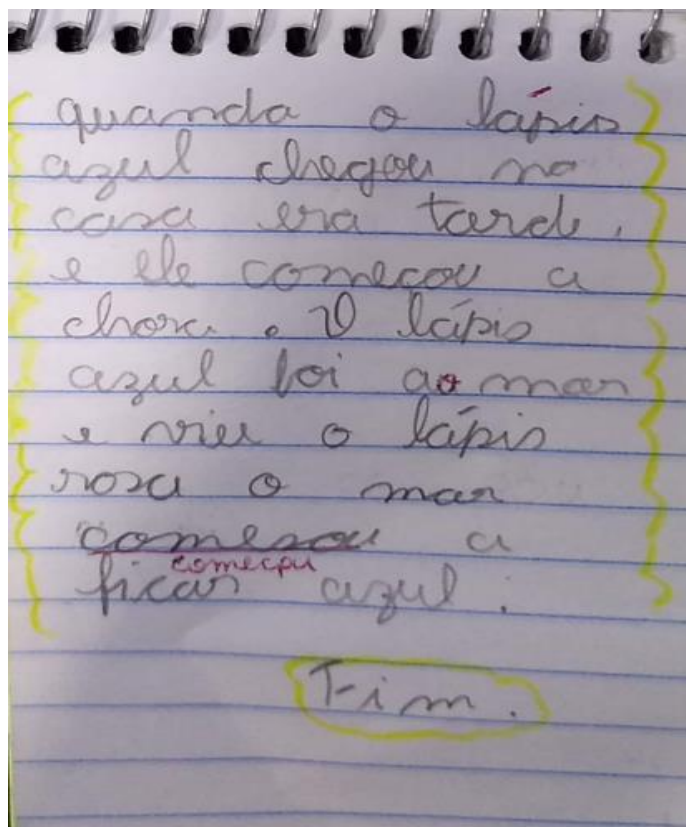 quanda o lápis
azul chegou na
casa era tarde.
e ele começou a
chora. O lápis
azul foi ao mar
e viu o lápis
rosa o mar
comesou a
começou
ficar azul.
Fim.